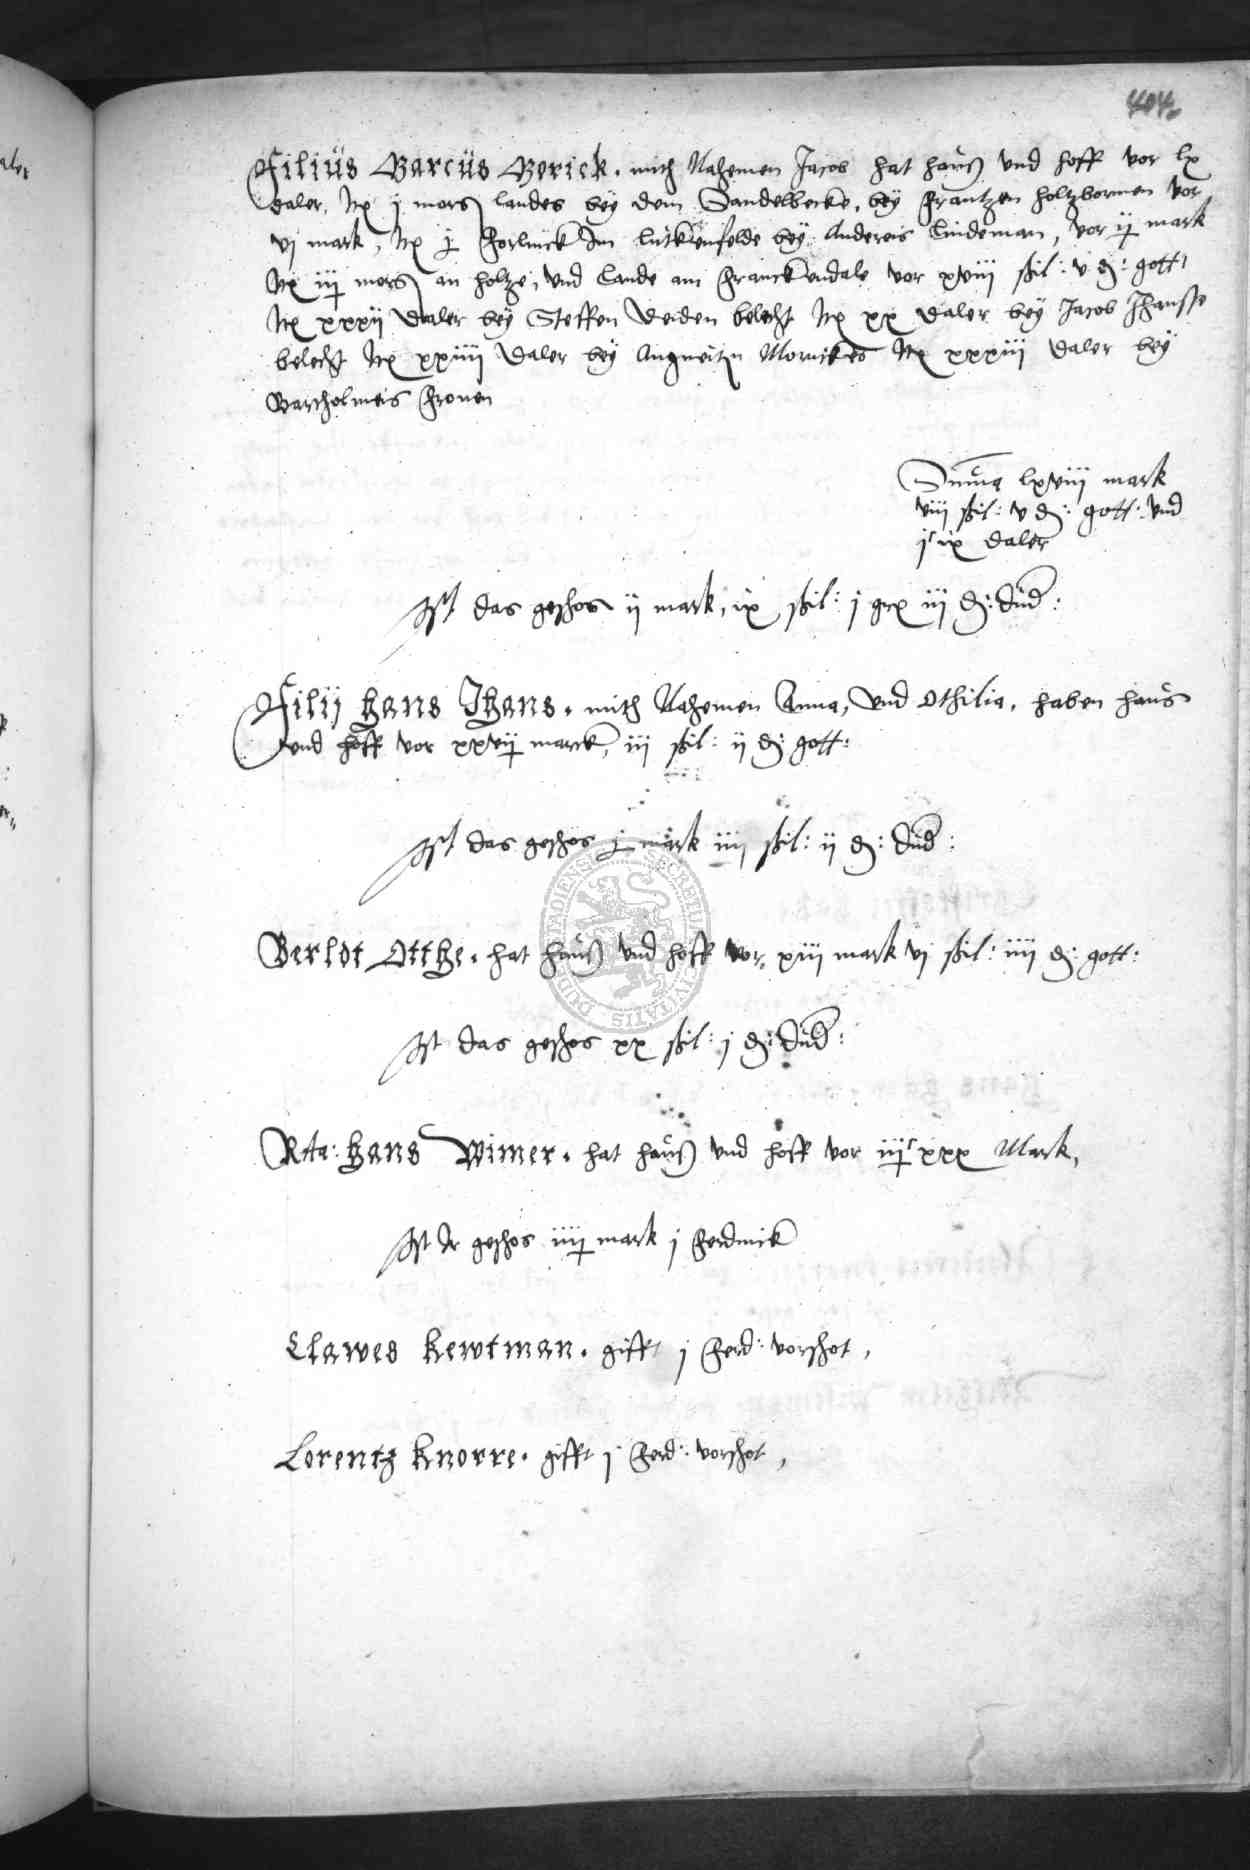 404.
Filius Barcus Berick. mith Nahemen Jacob hat hauß vnd hoff vor lx
daler, Itx j mors landes bey dem Sandelbecke, bey Frantzen Holtzbornen vor
vj mark, Itx j forlinck Im lutkenfelde bey Andereis Lindeman, vor ij mark
Itx iij mors an holtze, vnd Lande am Franckendale vor xviii skil: v d: gott:
Itx xxxij Daler bey Steffen Weiden belecht Itx xx daler bey Jacob Jhansse
belecht Itx xxiiii Daler bey Mornickes Itx xxxiii daler bey
Bartholmeis Fronen
Summa lxviii mark
viii skil: v d: gott: vnd
jc ix daler
Ist das geschos ij mark, ix skil: j grx iij d: dud:
Filij Hans Jhans. mith Nahemen Anna, vnd Othilia. haben haus
vnd hoff vor xxvij marck, iij skil: ij d: gott:
Ist das geschos j mark iiij skil: ij d: dud:
SECRETUM CIVITATIS DUDERSTADIENSIS
Berlot Otthe. hat hauß vnd hoff vor xiii mark vj skil: iiii d: gott:
Ist das geschos xx skil: j d: dud:
Rtta: Hans Wimer. hat hauß vnd hoff vor iijc xxx Mark,
Ist Ir geschos iiij mark j ferdinck
Clawes Kewtman. gifft j ferd: vorschot,
Lorentz Knorre. gifft j ferd: vorschot,